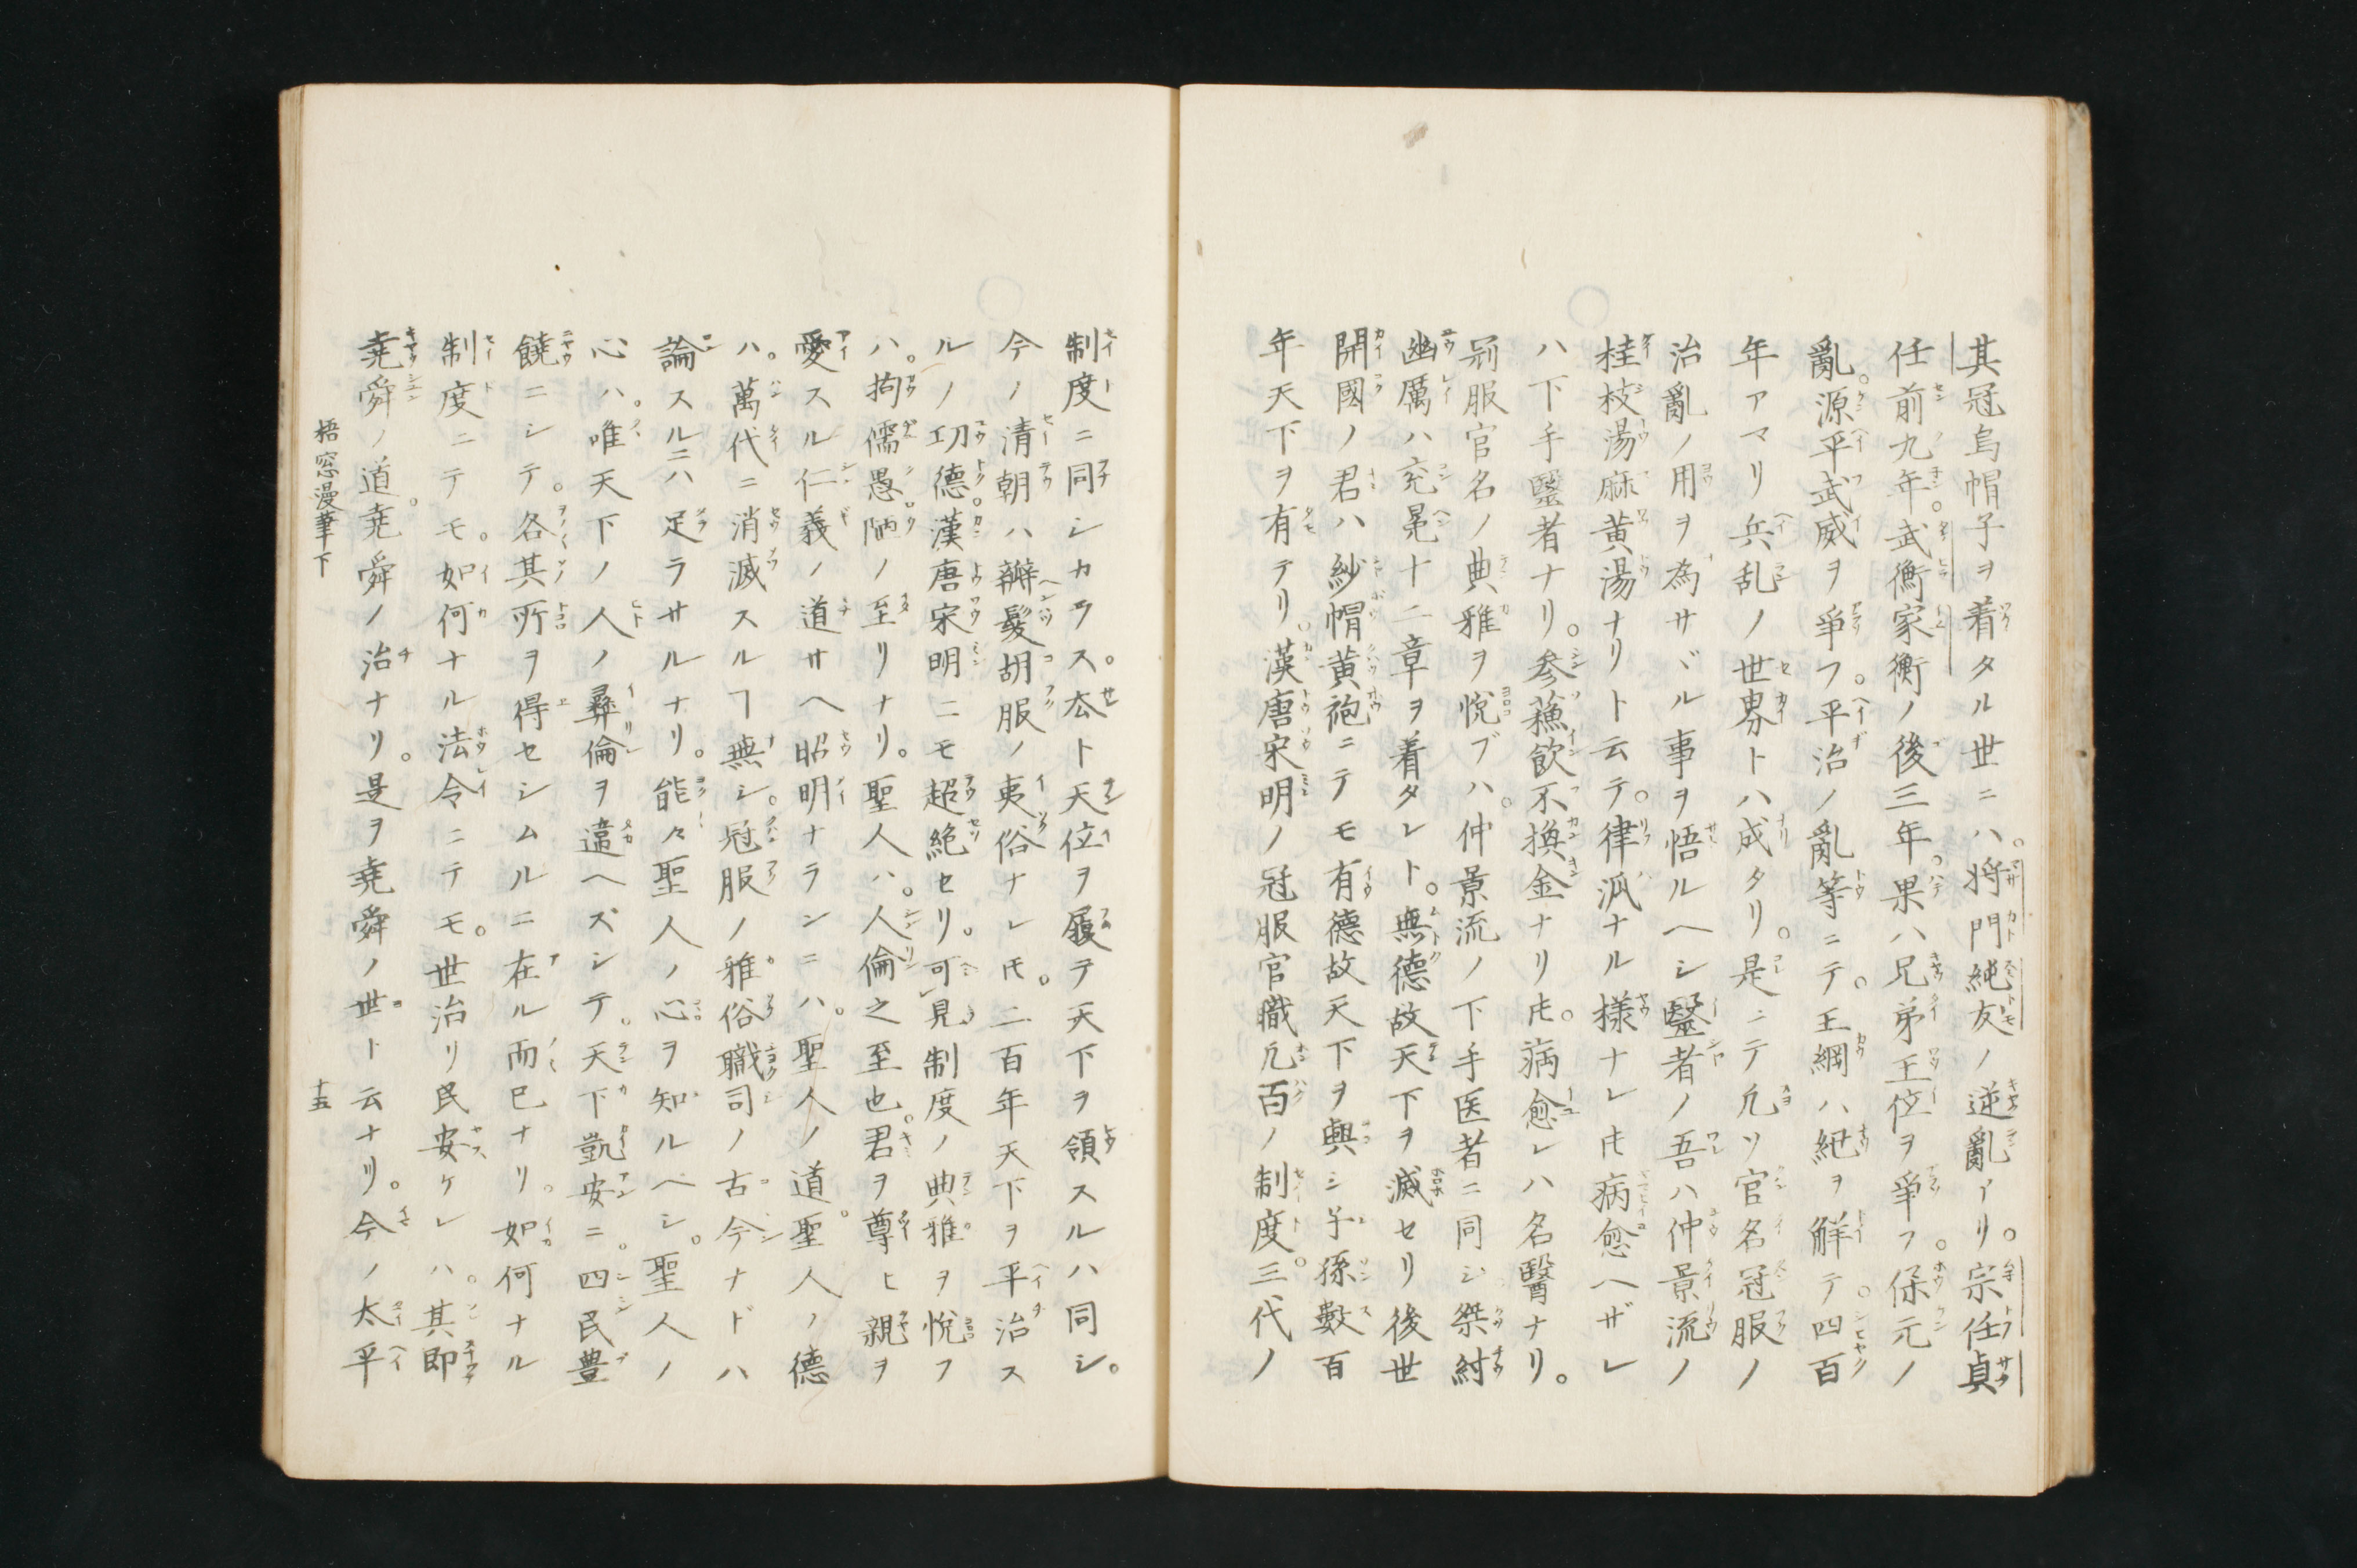 其冠烏帽子ヲ着タル世ニハ。将門純友ノ逆亂アリ。宗任貞
任前九年。武衡家衡ノ後三年。果ハ兄弟王位ヲ爭フ。保元ノ
亂。源平武威ヲ爭フ。平治ノ亂等ニテ。王綱ハ紐ヲ解テ。四百
年アマリ兵乱ノ世界トハ成タリ。是ニテ凢ソ官名冠服ノ
治亂ノ用ヲ為サヾル事ヲ悟ルヘシ毉者ノ吾ハ仲景流ノ
桂枝湯麻黄湯ナリト云テ。律派ナル様ナレ𪜈病愈ヘザレ
ハ下手毉者ナリ。参蘓飲不換金ナリ𪜈。病愈レハ名醫ナリ。
冠服官名ノ典雅ヲ悦ブハ。仲景流ノ下手医者ニ同シ桀紂
幽厲ハ兖冕十二章ヲ着タレト。無德故天下ヲ滅セリ後世
開國ノ君ハ紗帽黄袍ニテモ有德故天下ヲ興シ子孫數百
年天下ヲ有テリ。漢唐宋明ノ冠服官職凢百ノ制度。三代ノ
制度ニ同シカラス。厺ト天位ヲ履テ天下ヲ領スルハ同シ。
今ノ清朝ハ辮髮胡服ノ夷俗ナレ𪜈。二百年天下ヲ平治ス
ルノ功德。漢唐宋明ニモ超絶セリ。可見制度ノ典雅ヲ悦フ
ハ。拘儒愚陋ノ至リナリ。聖人ハ。人倫之至也。君ヲ尊ヒ親ヲ
愛スル仁義ノ道サヘ昭明ナランニハ。聖人ノ道。聖人ノ德
ハ。萬代ニ消滅スルヿ無シ。冠服ノ雅俗職司ノ古今ナドハ
論スルニハ足ラサルナリ。能々聖人ノ心ヲ知ルベシ。聖人ノ
心ハ。唯天下ノ人ノ彜倫ヲ違ヘズシテ。天下凱安ニ。四民豊
饒ニシテ。各其所ヲ得セシムルニ在ル而已ナリ。如何ナル
制度ニテモ。如何ナル法令ニテモ。世治リ民安ケレハ。其即
堯舜ノ道。堯舜ノ治ナリ。是ヲ堯舜ノ世ト云ナリ。今ノ太平
梧窓漫筆下 十五